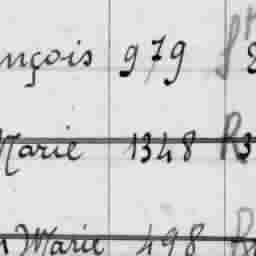 nçois 979
Marie 1348 R3
Marie 498 R